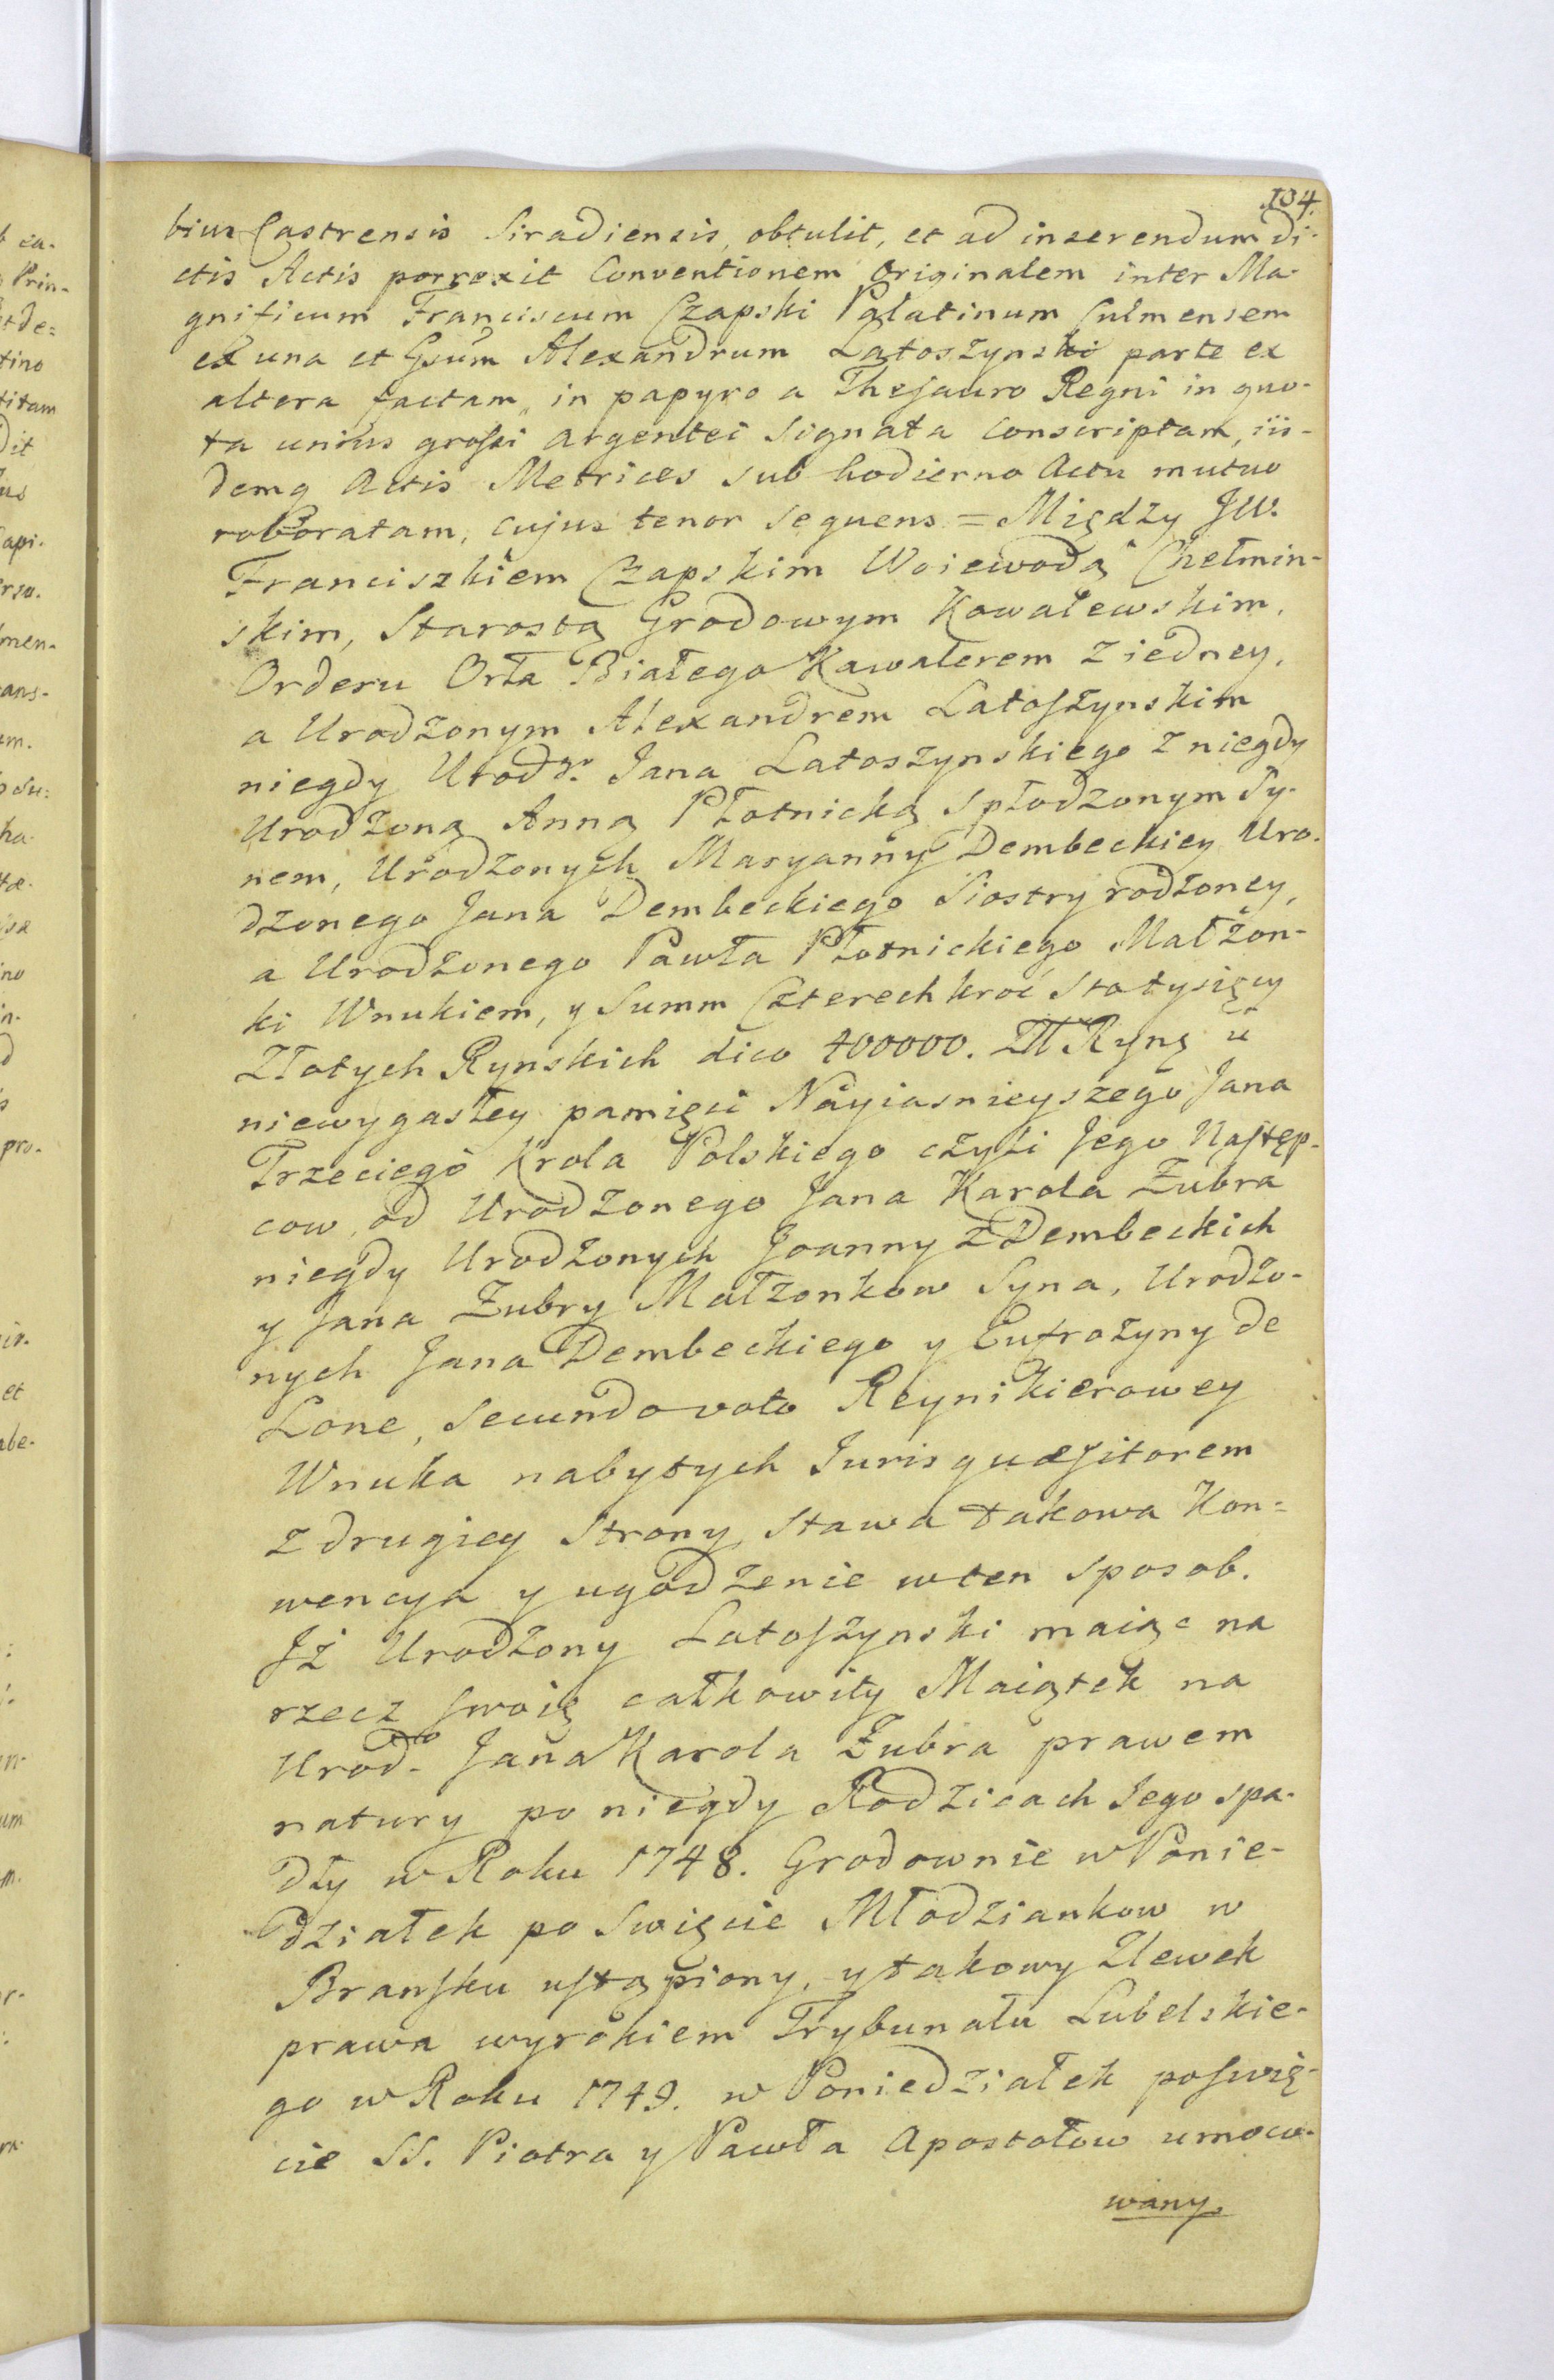 134.
bius Castrensis Siradiensis, obtulit, et ad inserendum di-
ctis Actis porrexit Conventionem Originalem inter Ma-
gnificum Franciscum Czapski Palatinum Culmensem
ex una et Gsum Alexandrum Latoszynski parte ex
altera factam, in papyro a Thesauro Regni in quo-
ta unius grossi argentei signata Conscriptam, iis-
demq Actis Metrices sub hodierno Actu mutuo
roboratam, cujus tenor sequens = Między JW.
Franciszkiem Czapskim Woiewodą Chełmin-
skim, Starostą Grodowym Kowalewskim,
Orderu Orła Białego Kawalerem z iedney,
a Urodzonym Alexandrem Latoszynskim
niegdy Urodz. Jana Latoszynskiego z niegdy
Urodzoną Anną Płotnicką spłodzonym Sy-
nem, Urodzonych Maryanny Dembeckiey Uro-
dzonego Jana Dembeckiego Siostry rodzoney,
a Urodzonego Pawła Płotnickiego Małżon-
ki Wnukiem, y Summ Czterech kroć Sto tysięcy
Złotych Rynskich dico 400000. Złł Ryng u
niewygasłey pamięci Nayiasnieyszego Jana
Trzeciego Krola Polskiego czyli Jego Następ-
cow, od Urodzonego Jana Karola Zubra
niegdy Urodzonych Joanny z Dembeckich
y Jana Zubry Małzonkow Syna, Urodzo-
nych Jana Dembeckiego y Eufrozyny de
Lone, Secundo voto Reynikierowey
Wnuka nabytych Juris quæsitorem
z drugiey Strony, stawa takowa Kon-
wencya y ugodzenie wten sposob.
Jż Urodzony Latoszynski maiąc na
rzecz swoię całkowity Maiątek na
Urod. Jana Karola Zubra prawem
natury po niegdy Rodzicach Jego spa-
dły w Roku 1748. Grodownie w Ponie-
działek po Swięcie Młodziankow w
Bransku ustąpiony, y takowy Zlewek
prawa wyrokiem Trybunału Lubelskie-
go w Roku 1749. w Poniedziałek po Swię-
cie SS. Piotra y Pawła Apostołow umoco-
wany,